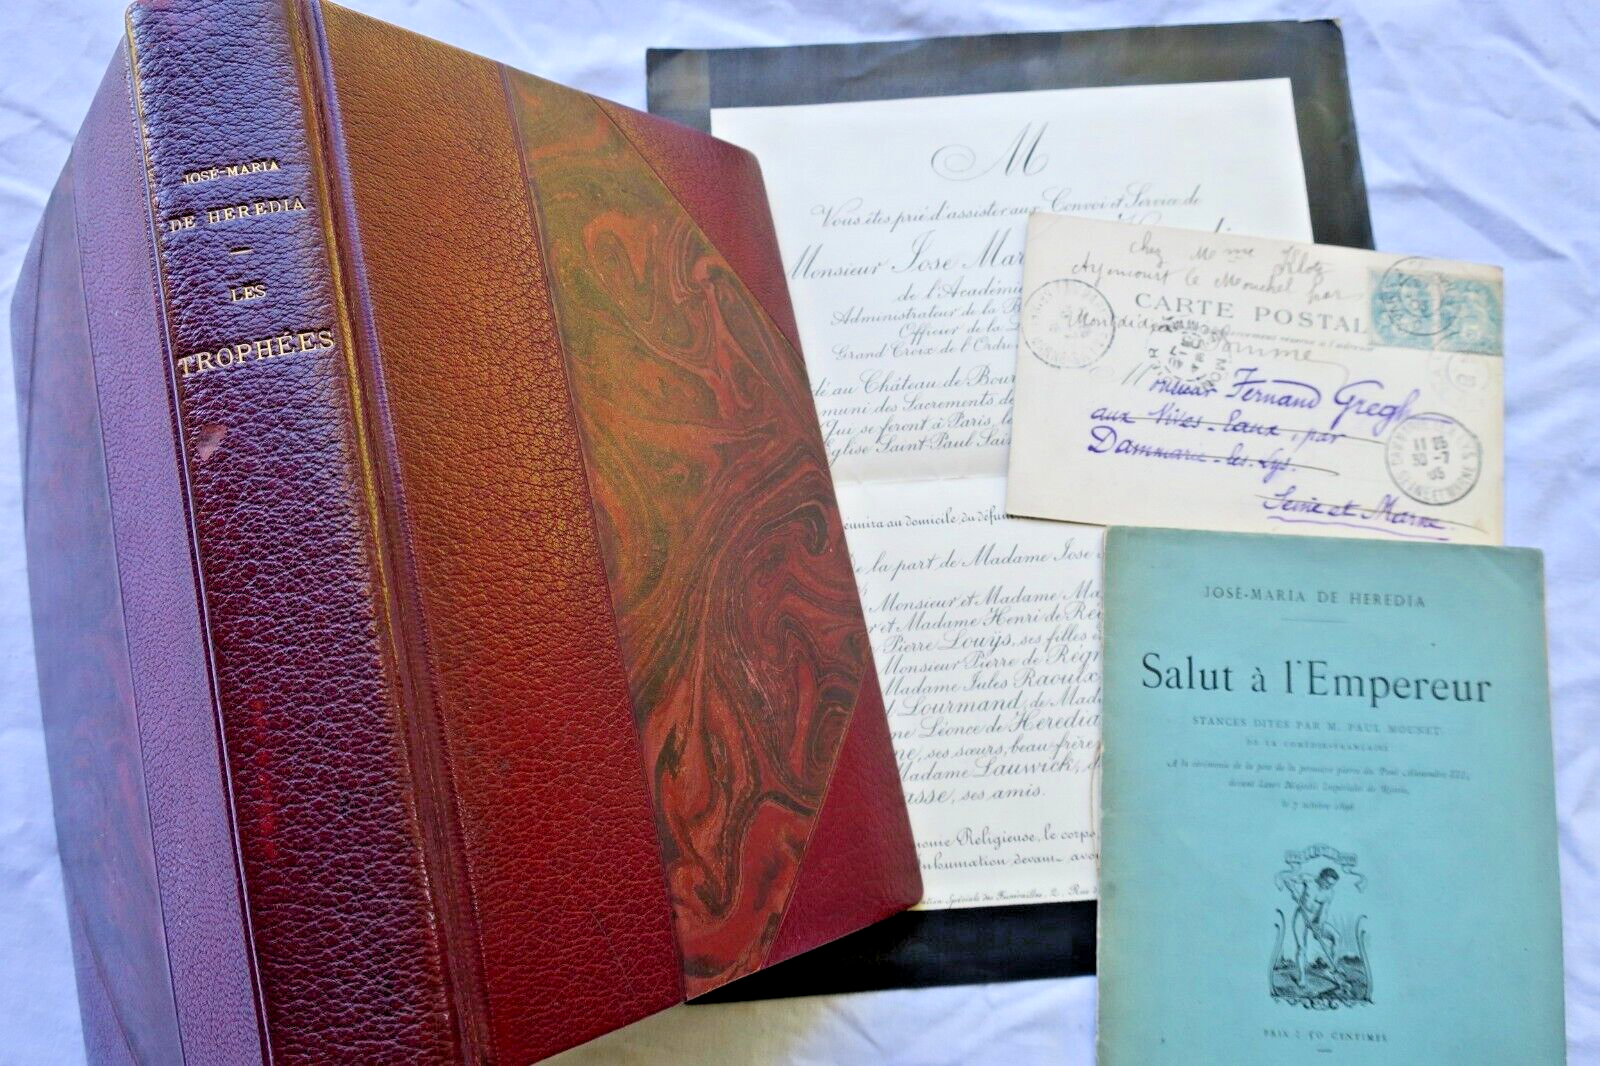 JOSÉ-MARIA
DE HEREDIA
LES
TROPHÉES
M
Vous êtes prié d'assister aux Convoi et Service de
Monsieur Jose Mar
de l'Académi
Administrateur de la B
Officier de la
Grand Croix de l'Ordre
dé au Château de Bour
muni des Sacrements de
Qui se feront à Paris, le
Église Saint Paul Sain
éunira au domicile du défunt,
la part de Madame Jose
Monsieur et Madame Ma
r et Madame Henri de Ré
Pierre Louÿs, ses filles e
Monsieur Pierre de Régn
Madame Jules Raoulx
Lourmand, de Mad
me Léonce de Heredia
ne, ses sœurs, beau frère
Madame Lauwick, d
asse, ses amis.
onie Religieuse, le corps
Inhumation devant avo
ation Spéciale des Funérailles. 2, Rue d
chez Mme
Ayencourt le Monchel par
CARTE POSTALE
Montdidier
Somme
Monsieur Fernand Gregh
aux Vives-Eaux, par
Dammarie-les-Lys.
Seine et Marne.
JOSÉ-MARIA DE HEREDIA
Salut à l'Empereur
STANCES DITES PAR M. PAUL MOUNET
DE LA COMÉDIE-FRANÇAISE
A la cérémonie de la pose de la première pierre du Pont Alexandre III,
devant Leurs Majestés Impériales de Russie,
le 7 octobre 1896
PRIX : 50 CENTIMES